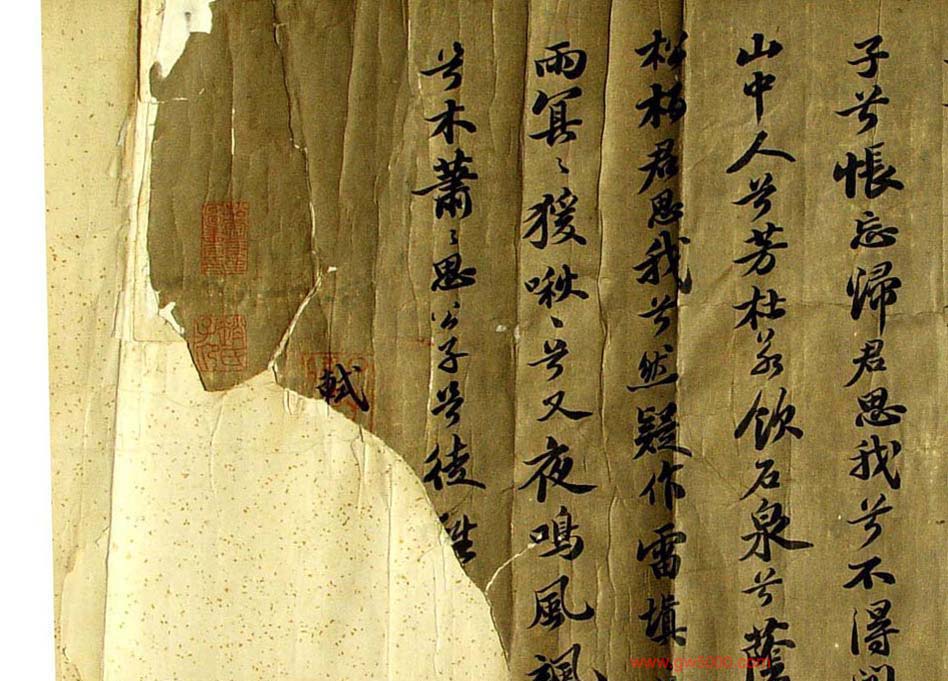 子兮悵忘歸君思我兮不得
山中人兮芳杜若飲石泉兮蔭
松柏君思我兮然疑作雷填
雨冥〻猨啾〻兮又夜鳴風颯
兮木蕭〻思公子兮徒
軾